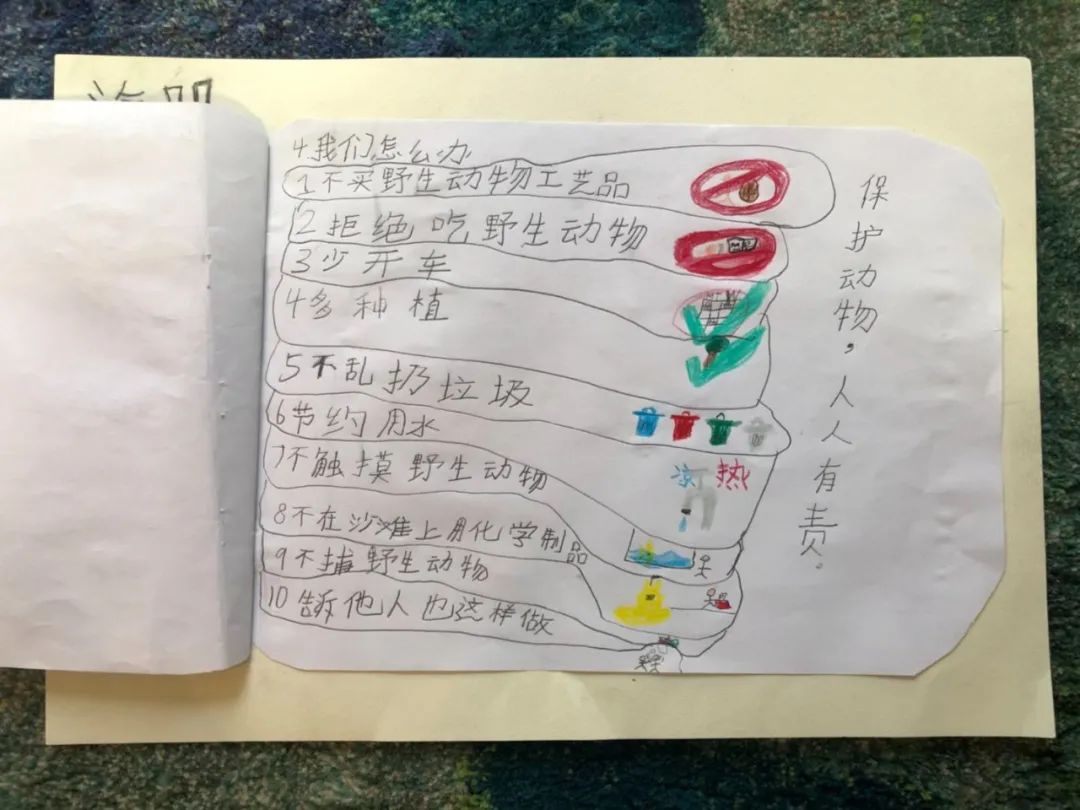 4.我们怎么办
1不买野生动物工艺品
2拒绝吃野生动物
3少开车
4多种植
5不乱扔垃圾
6节约用水
7不触摸野生动物
8不在沙滩上用化学制品
9不捕野生动物
10告诉他人也这样做
凉 热
保护动物，人人有责.